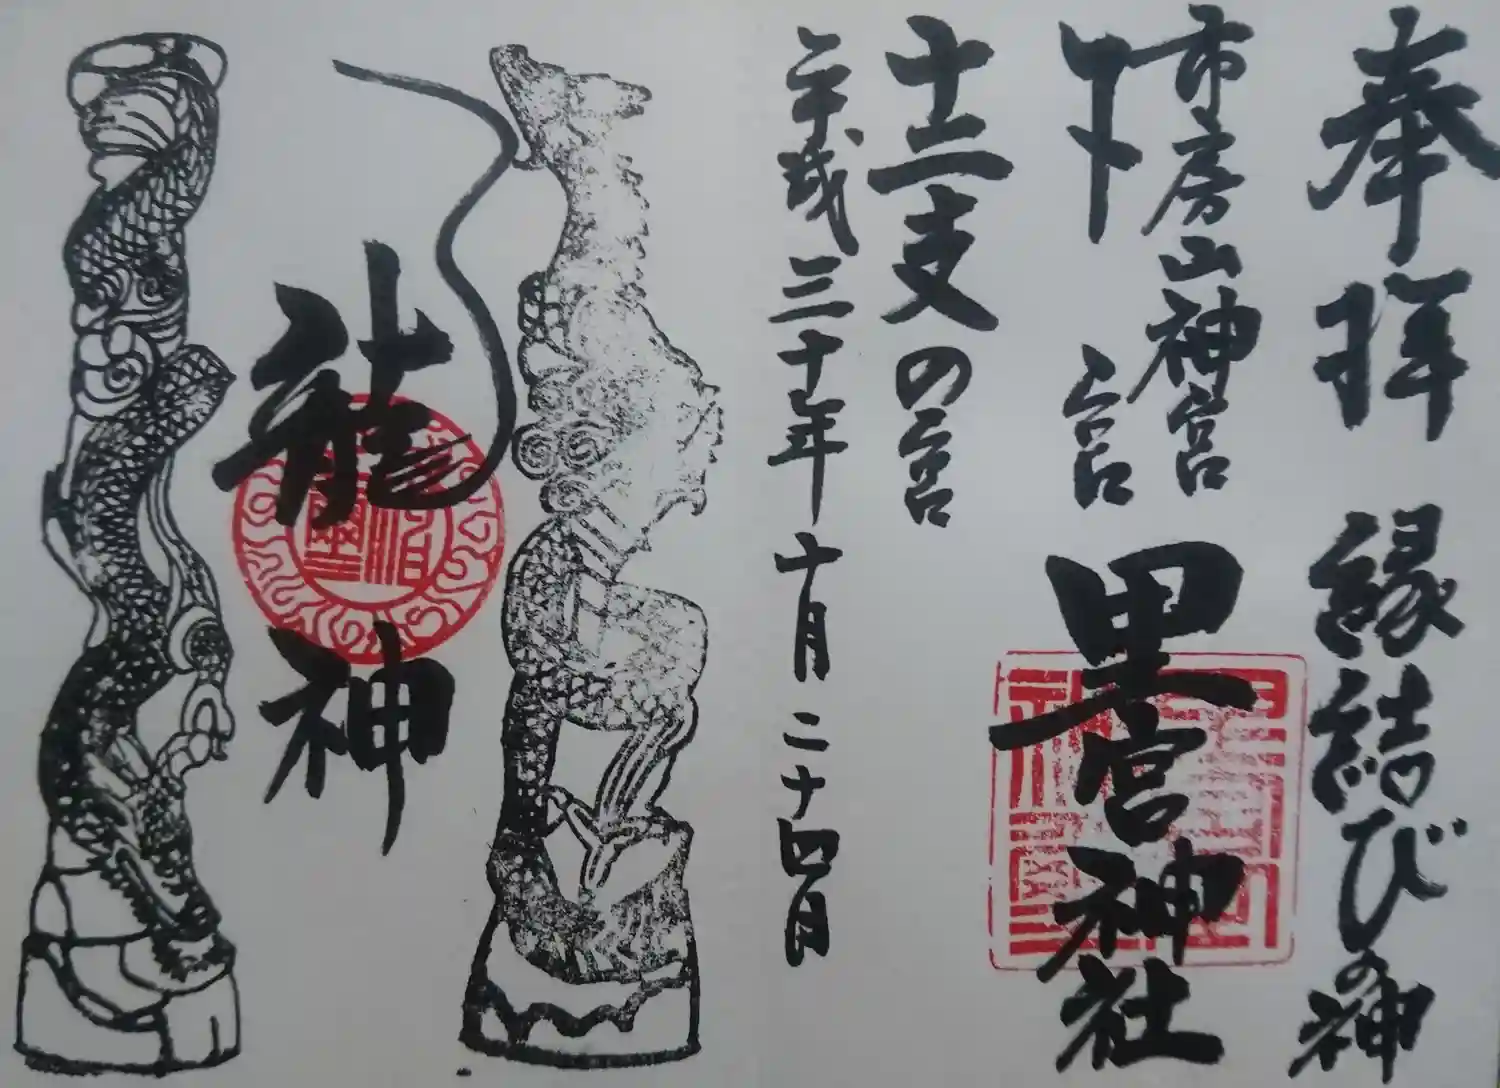 奉拝 縁結びの神
市房山神宮
下宮
里宮神社
十二支の宮
平成三十年十月二十四日
龍神